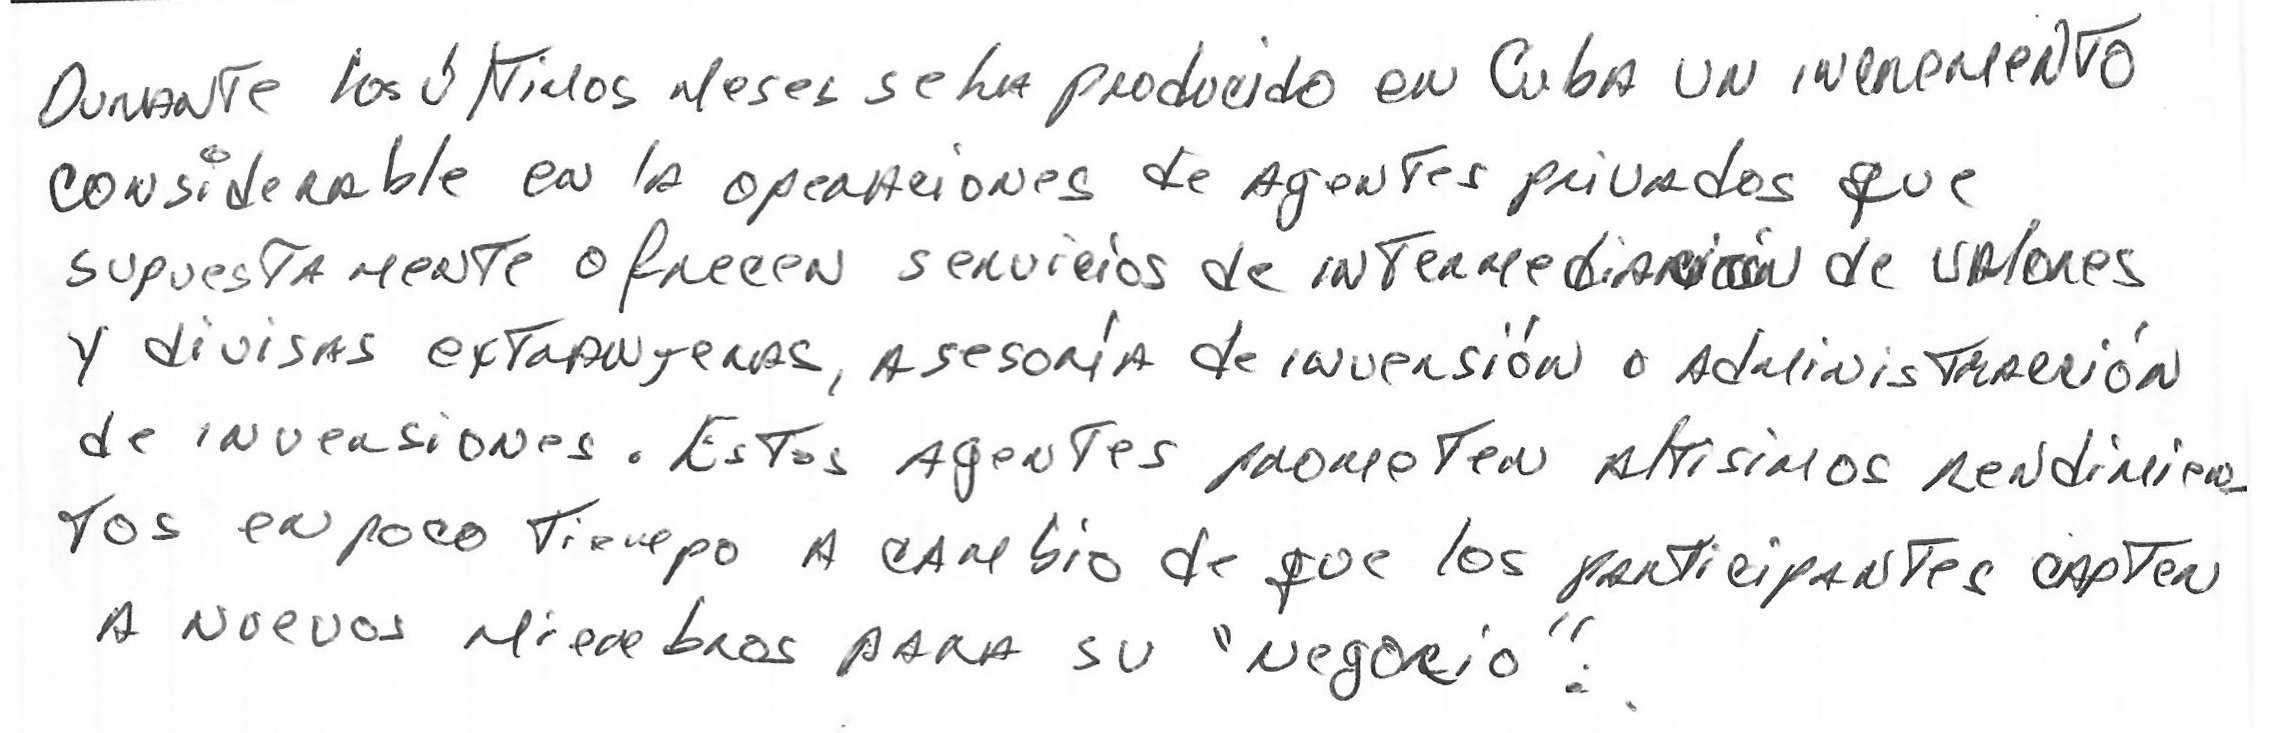 Durante los últimos meses se ha producido en Cuba un incremento
considerable en la operaciones de agentes privados que
supuestamente ofrecen servicios de intermediación de valores
y divisas extranjeras, asesoría de inversión o administración
de inversiones. Estos agentes prometen altisimos rendimien-
tos en poco tiempo a cambio de que los participantes capten
a nuevos miembros para su "negocio".